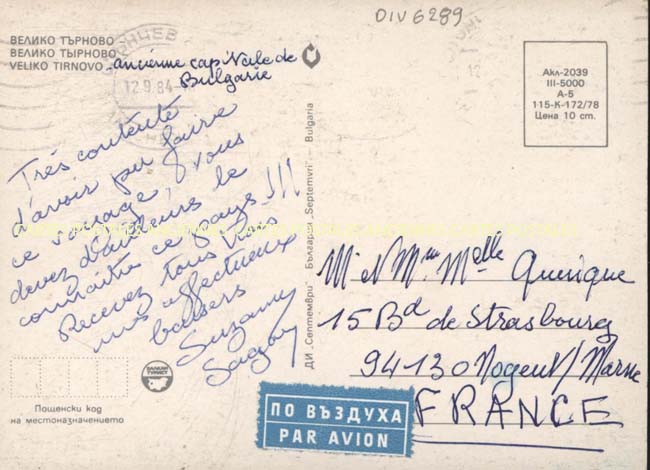 DIV6289
ВЕЛИКО ТЪРНОВО
ВЕЛИКО ТЫРНОВО
VELIKO TIRNOVO - ancienne capitale de
Bulgarie
12.9.84
Акл-2039
III-5000
А-5
115-К-172/78
Цена 10 ст.
Très contente
d'avoir pu faire
ce voyage, vous
devez d'ailleurs le
connaître ce pays!!!
Recevez tous mes
affectueux
baisers
Suzanne
ДИ „Септември" – България „Septemvri" – Bulgaria
Mr Mme Melle
15 Bd de Strasbourg
94130 Nogent/Marne
FRANCE
БАЛКАН
ТУРИСТ
Пощенски код
на местоназначението
ПО ВЪЗДУХА
PAR AVION